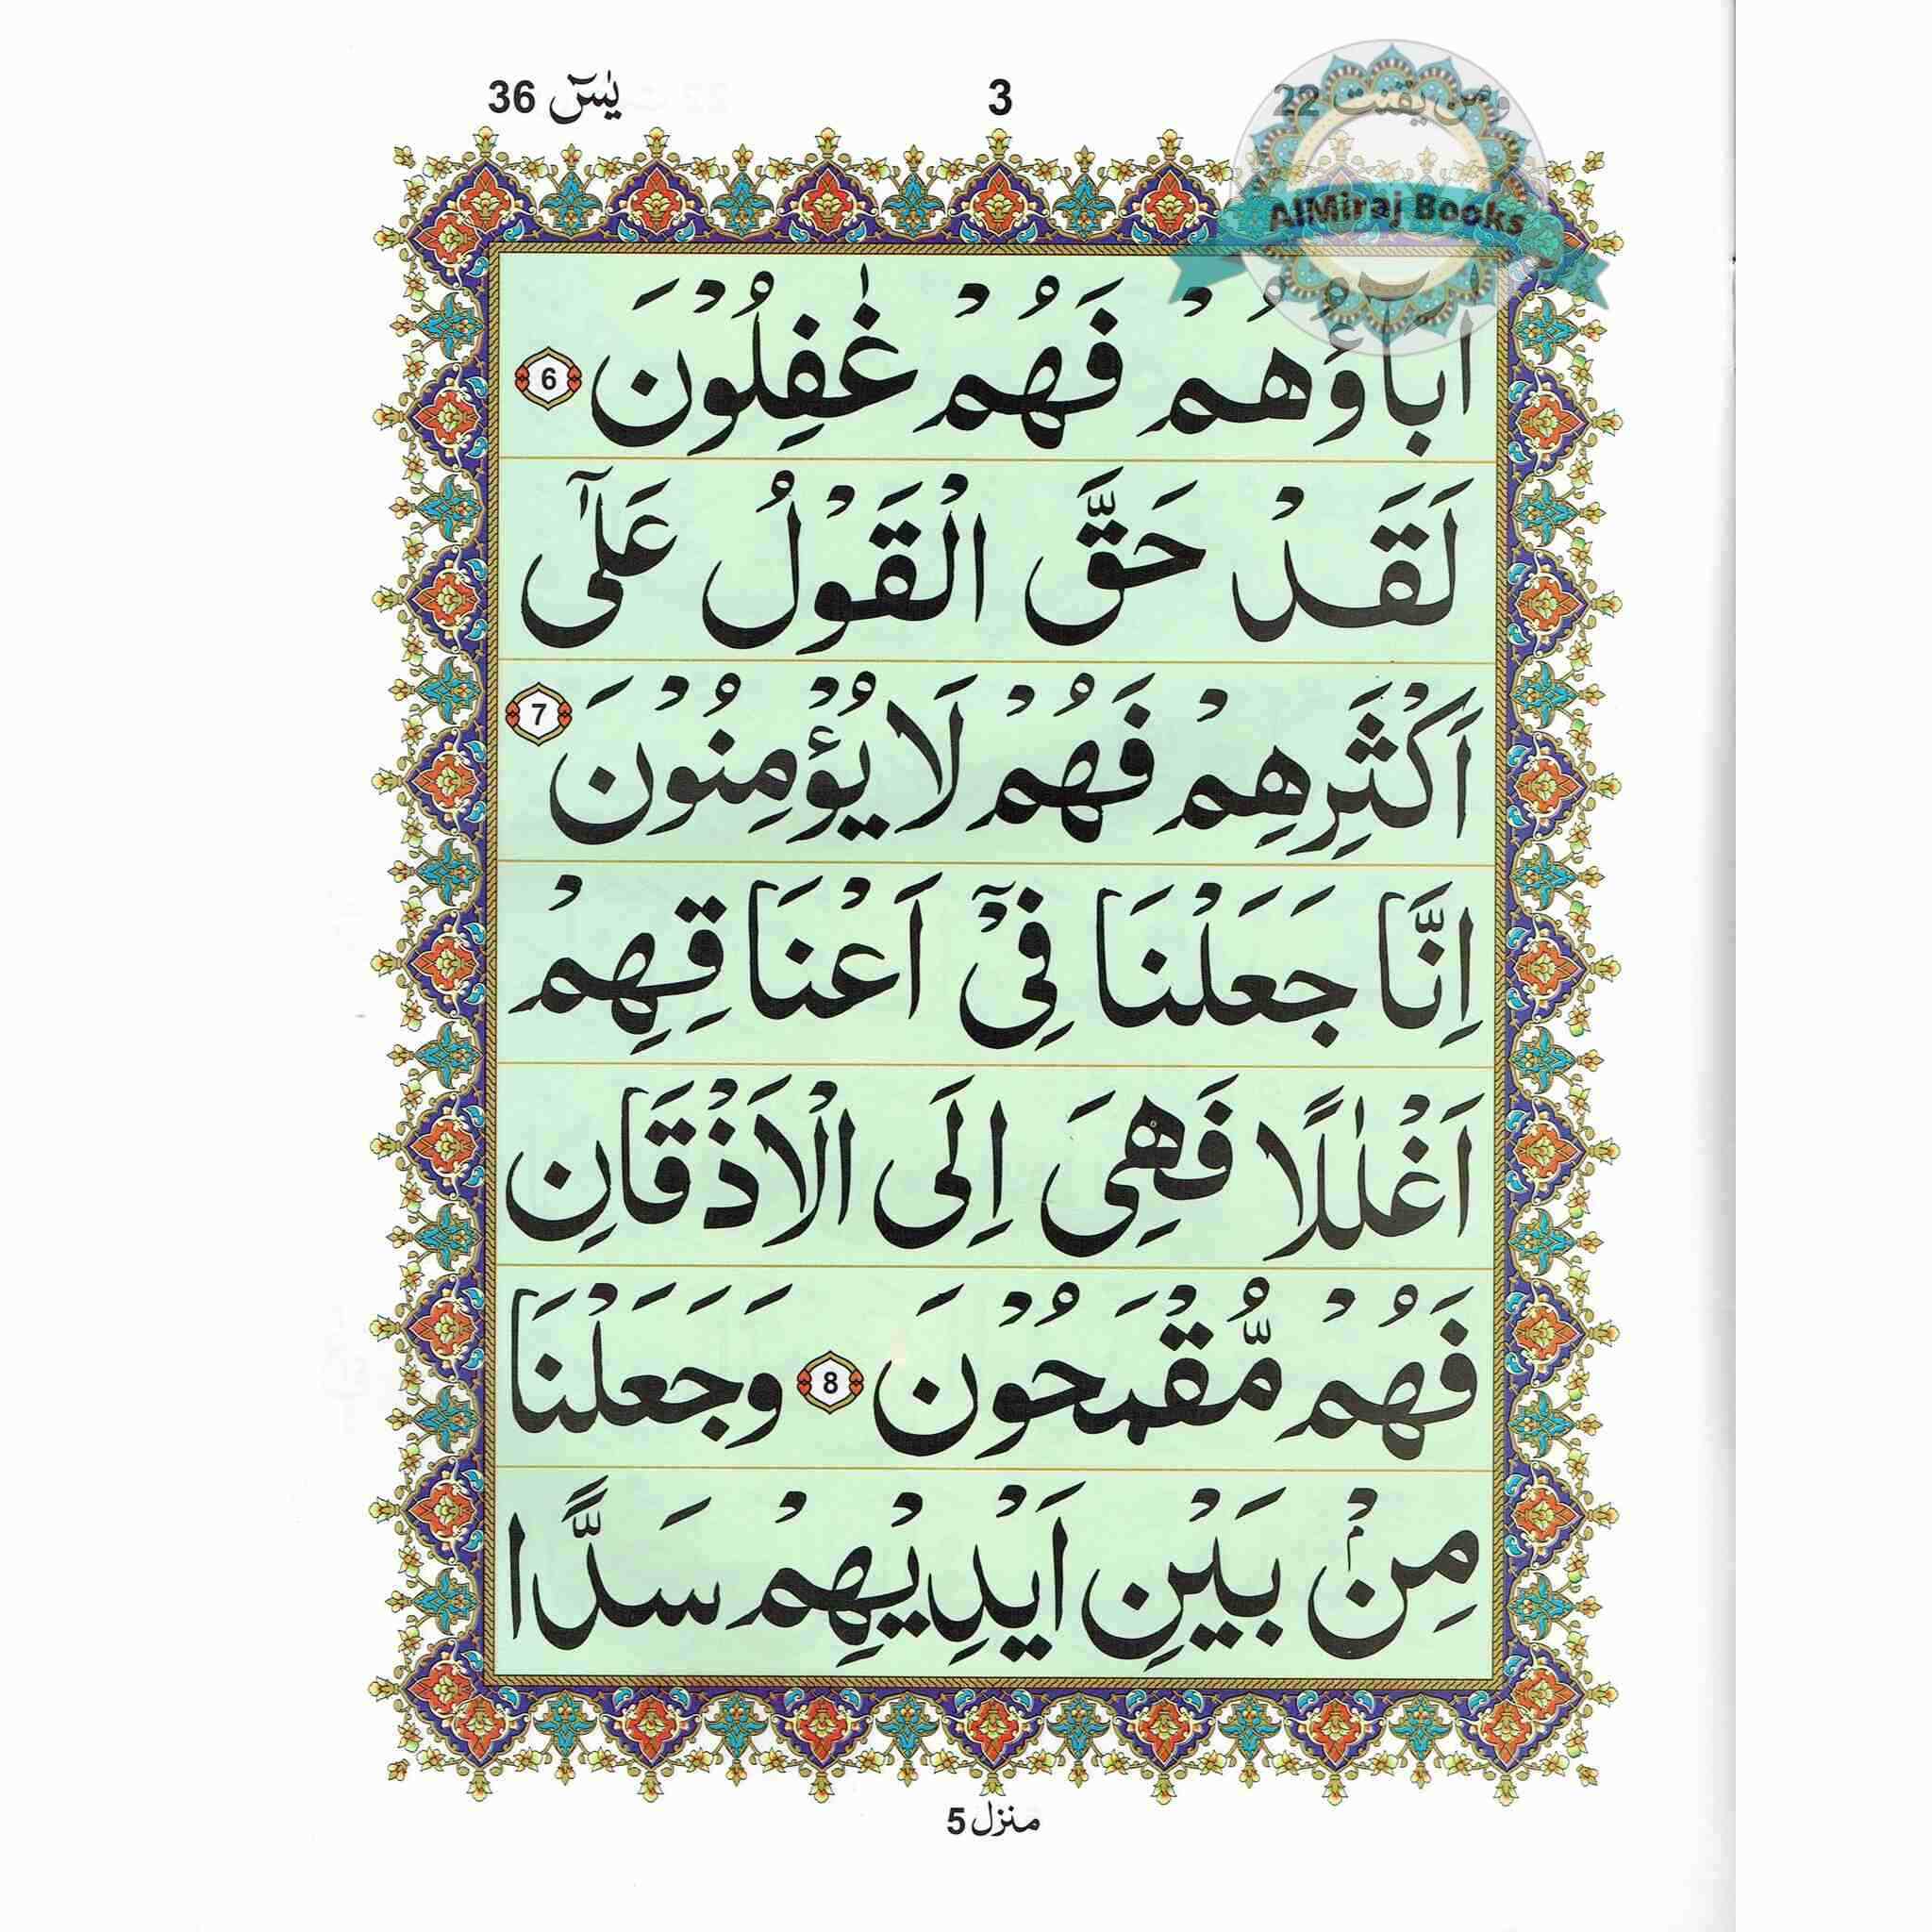 ومن يقنت 22
3
يٰسٓ 36
AlMiraj Books
اٰبَآؤُهُمْ فَهُمْ غٰفِلُوْنَ 6
لَقَدْ حَقَّ الْقَوْلُ عَلٰٓى
اَكْثَرِهِمْ فَهُمْ لَا يُؤْمِنُوْنَ 7
اِنَّا جَعَلْنَا فِيْٓ اَعْنَاقِهِمْ
اَغْلٰلًا فَهِىَ اِلَى الْاَذْقَانِ
فَهُمْ مُّقْمَحُوْنَ 8 وَجَعَلْنَا
مِنْۢ بَيْنِ اَيْدِيْهِمْ سَدًّا
منزل 5